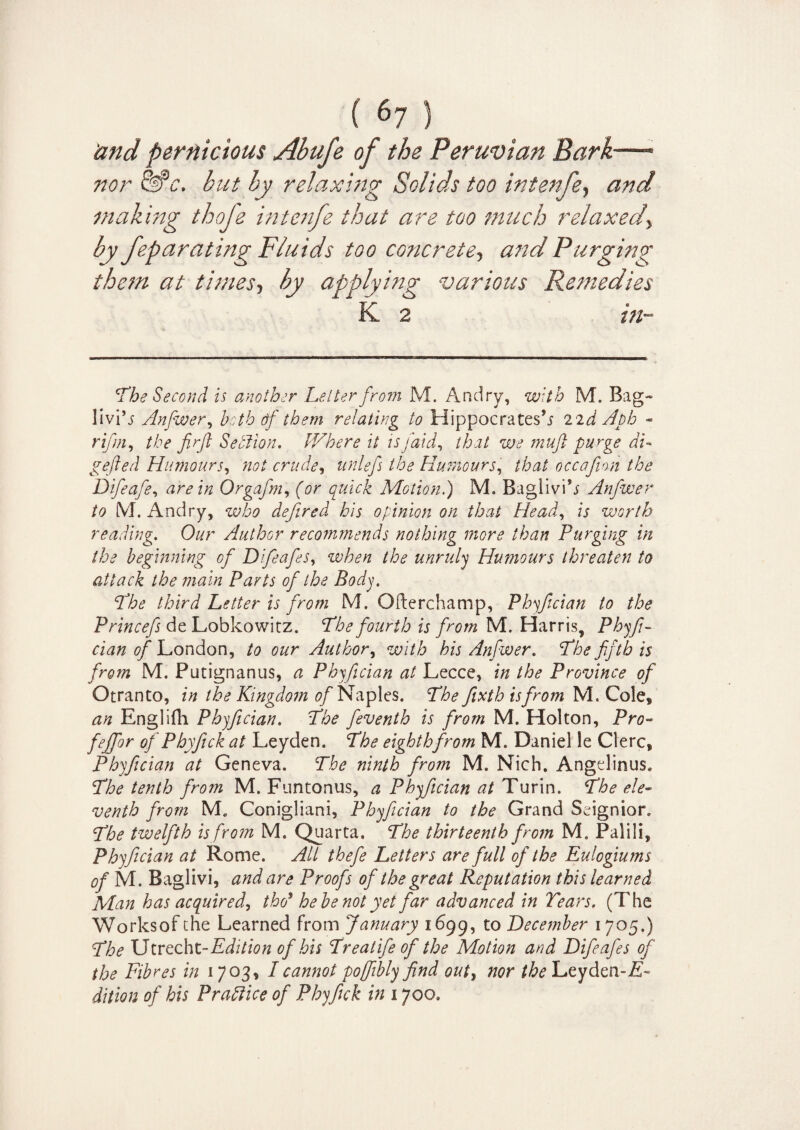 ( 67 )
and pernicious Abuſe of the Peruvian Bark——
nor &c. but by relaxing Solids too intenſe, and
making thoſe intenſe that are too much relaxed,
by ſeparating Fluids too concrete, and Purging
them at times, by applying various Remedies
K 2 in-
The Second is another Letter from M. Andry, with M. Bag-
livi's Anſwer, both of them relating to Hippocrates's 22d Aph -
riſm, the firſt Section. Where it is ſaid, that we muſt purge di-
geſted Humours, not crude, unleſs the Humours, that occaſion the
Diſeaſe, are in Orgaſm, (or quick Motion.) M. Baglivi's Anſwer
to M. Andry, who deſired his opinion on that Head, is worth
reading. Our Author recommends nothing more than Purging in
the beginning of Diſeaſes, when the unruly Humours threaten to
attack the main Parts of the Body.
The third Letter is from M. Oſterchamp, Phyſician to the
Princeſs de Lobkowitz. The fourth is from M. Harris, Phyſi-
cian of London, to our Author, with his Anſwer. The fifth is
from M. Putignanus, a Phyſician at Lecce, in the Province of
Otranto, in the Kingdom of Naples. The ſixth is from M. Cole,
an Engliſh Phyſician. The ſeventh is from M. Holton, Pro-
feſſor of Phyſick at Leyden. The eighth from M. Daniel le Clerc,
Phyſician at Geneva. The ninth from M. Nich. Angelinus.
The tenth from M. Funtonus, a Phyſician at Turin. The ele-
venth from M. Conigliani, Phyſician to the Grand Seignior.
The twelfth is from M. Quarta. The thirteenth from M. Palili,
Phyſician at Rome. All theſe Letters are full of the Eulogiums
of M. Baglivi, and are Proofs of the great Reputation this learned
Man has acquired, tho' he be not yet far advanced in Years. (The
Works of the Learned from January 1699, to December 1705.)
The Utrecht-Edition of his Treatiſe of the Motion and Diſeaſes of
the Fibres in 1703, I cannot poſſibly find out, nor the Leyden-E-
dition of his Practice of Phyſick in 1700.